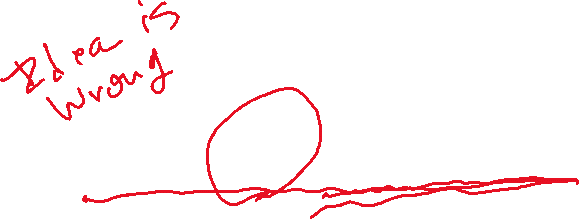 Idea is
Wrong